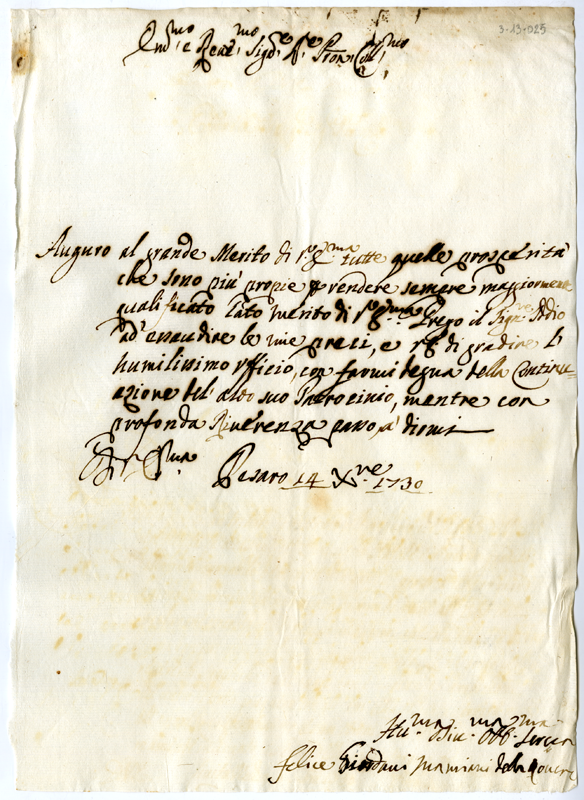 3-13-025
Em.mo e Rev.mo Sig.e P.e Pron Col.mo
Auguro al grande Merito di V. E.ma tutte quelle prosperità
che sono più propie p rendere sempre maggiormente
qualificato l'alto merito di V. E.ma. Prego il Sig.re Iddio
ad' esaudire le mie preci, e V. E. di gradire l'
humilissimo ufficio, con farmi degna della Continu-
azione del' alto suo Patrocinio, mentre con
profonda Riverenza passo, a' dirmi
Di V. E.ma
Pesaro 14 X.bre 1730
Hu.ma Div.ma Obb.ma Serva
felice Giordani Mamiani della Rovere